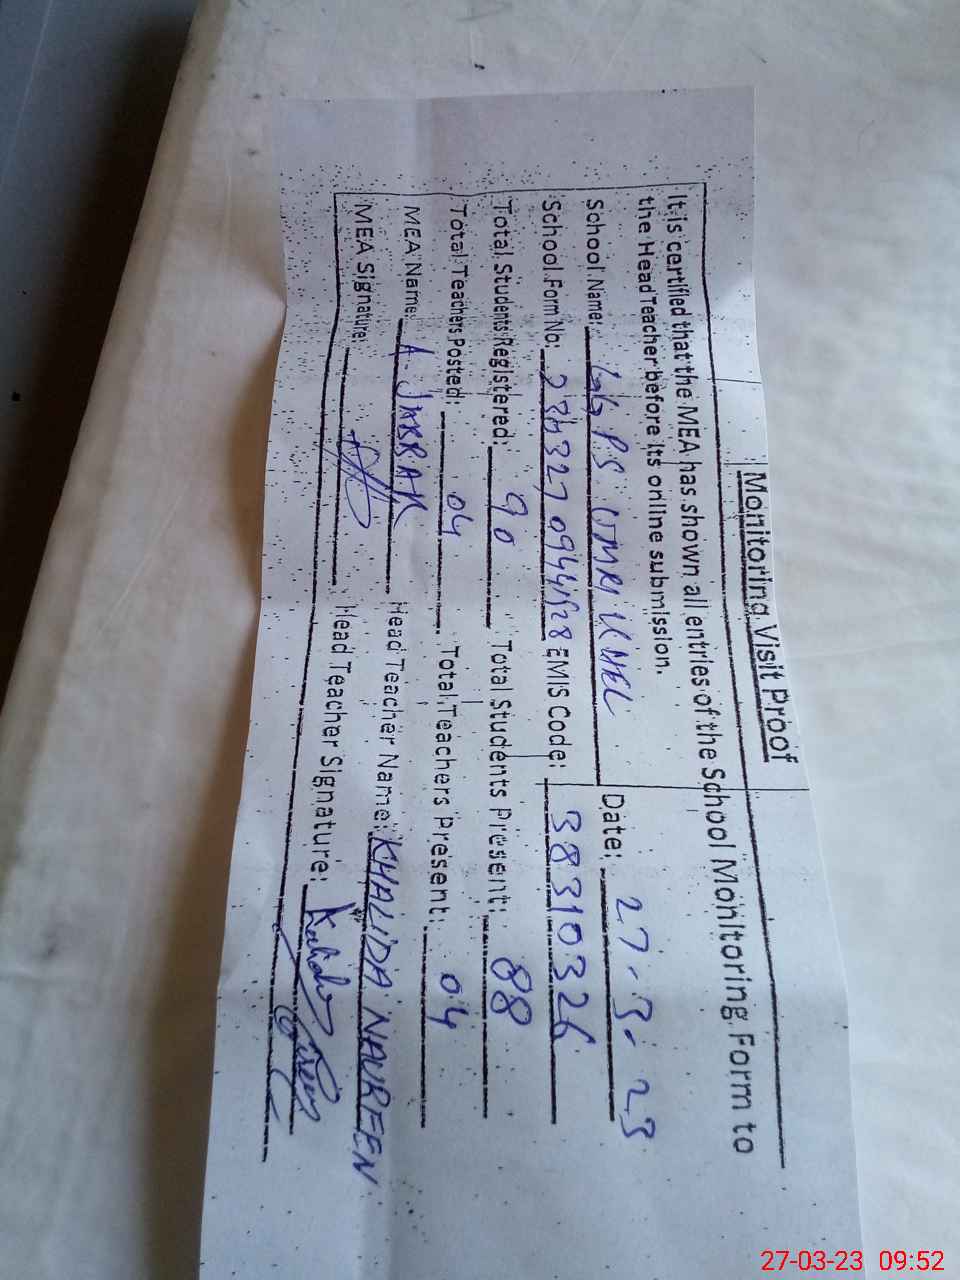 Monitoring Visit Proof
It is certified that the MEA has shown all entries of the School Monitoring Form to
the Head Teacher before its online submission.
School Name: GGPS UMRI KHEL Date: 27.3.23
School Form No: EMIS Code: 38310326
Total Students Registered: 90 Total Students Present: 88
Total Teachers Posted: 04 Total Teachers Present: 04
MEA Name: A. JABBAR Head Teacher Name: KHALIDA NAUREEN
MEA Signature: Head Teacher Signature:
27-03-23 09:52